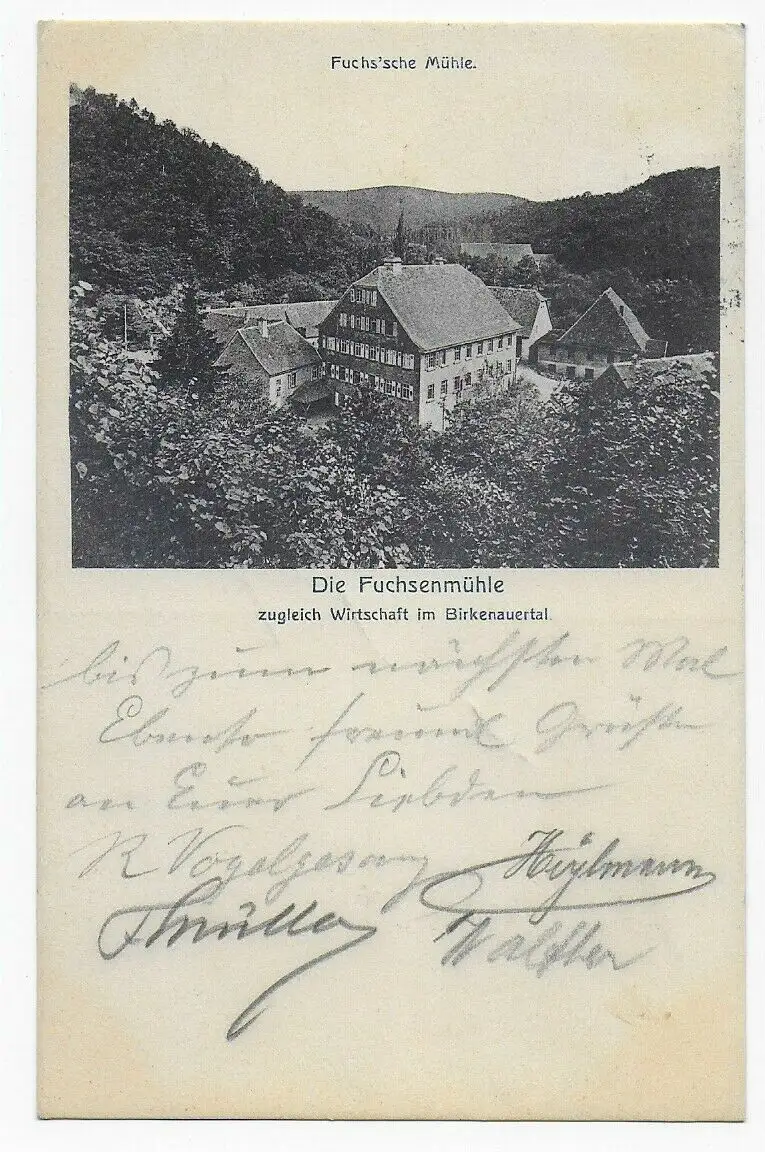 Fuchs'sche Mühle.
Die Fuchsenmühle
zugleich Wirtschaft im Birkenauertal.
bis zum nächsten Mal
Ebenso freundl Grüße
an Euer Liebden
R Vogelgesang
Heylmann
Müller
Walther